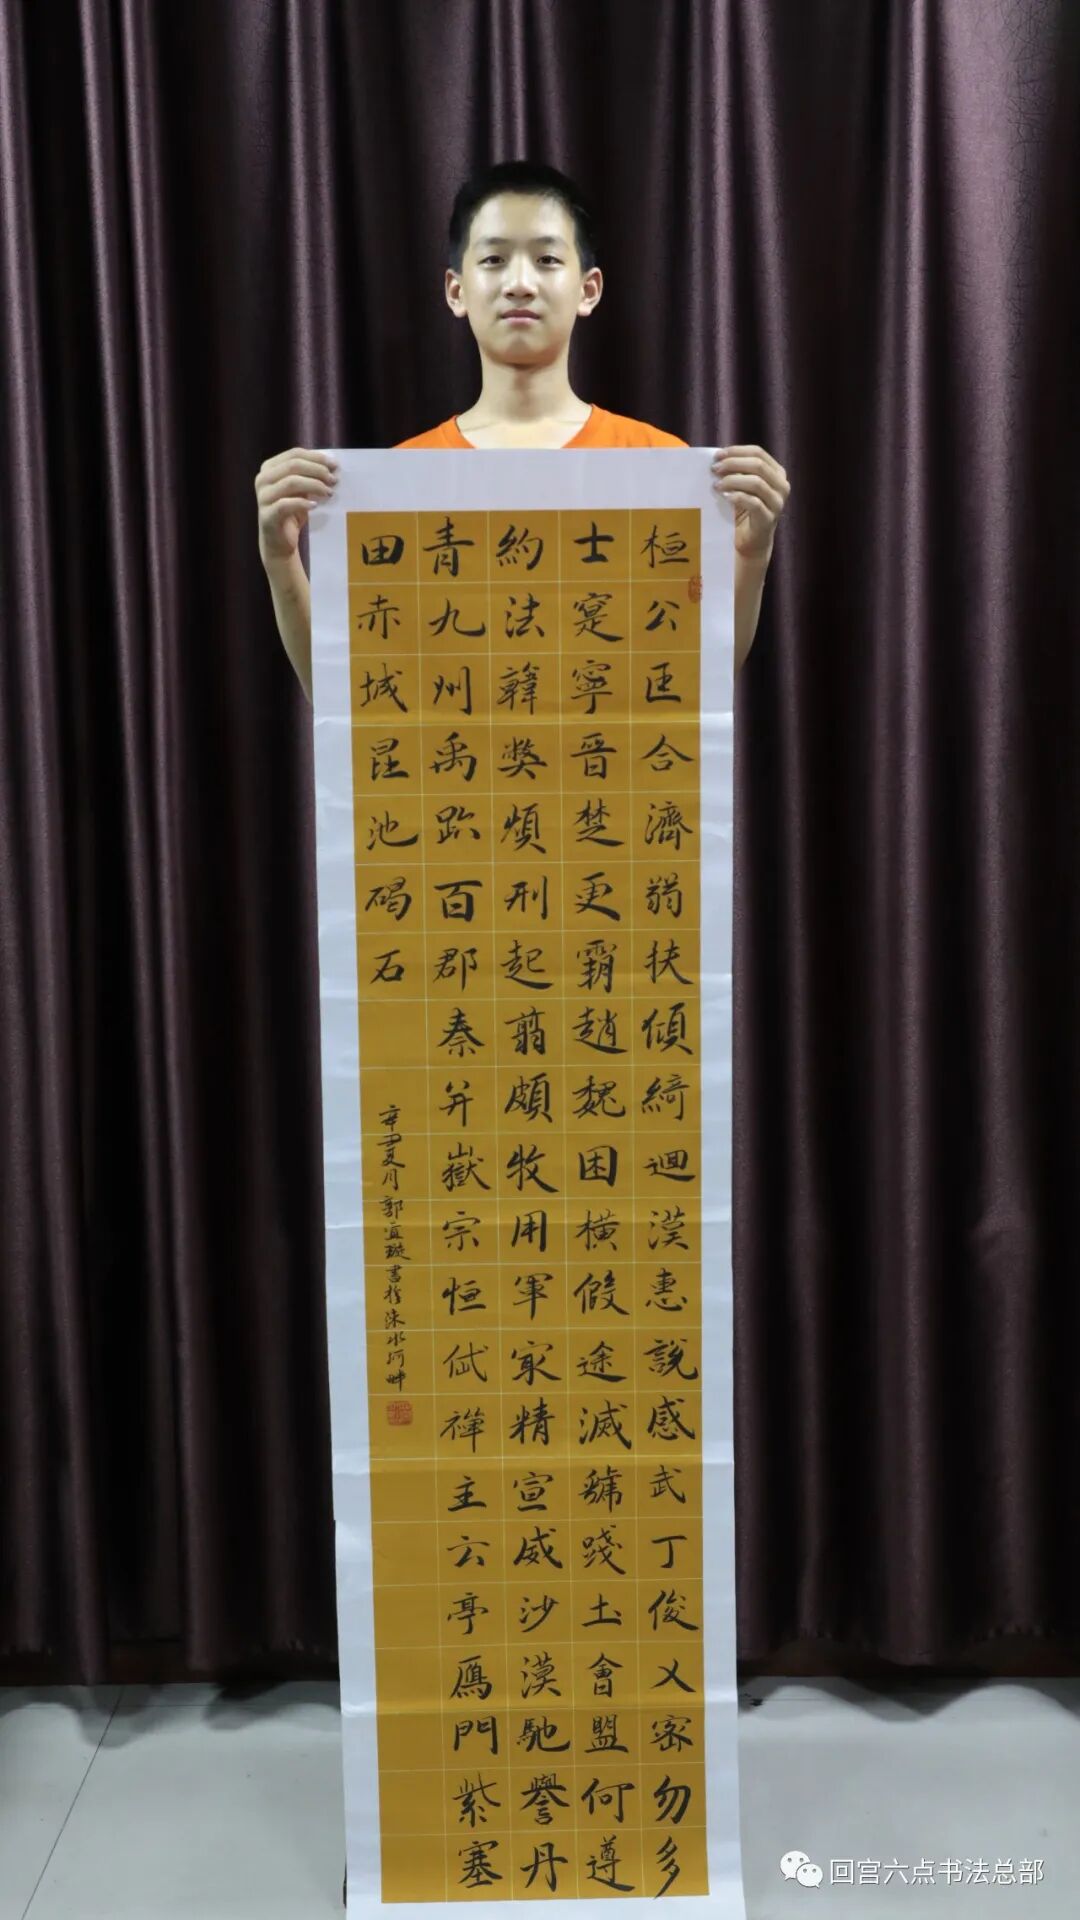 桓公匡合濟弱扶傾綺迴漢惠説感武丁俊乂密勿多
士寔寧晉楚更霸趙魏困橫假途滅虢踐土會盟何遵
約法韓獘煩刑起翦頗牧用軍㝡精宣威沙漠馳譽丹
青九州禹跡百郡秦并嶽宗恒岱禪主云亭鴈門紫塞
田赤城昆池碣石
辛丑夏月郭宜璇書於洙水河畔
回宫六点书法总部